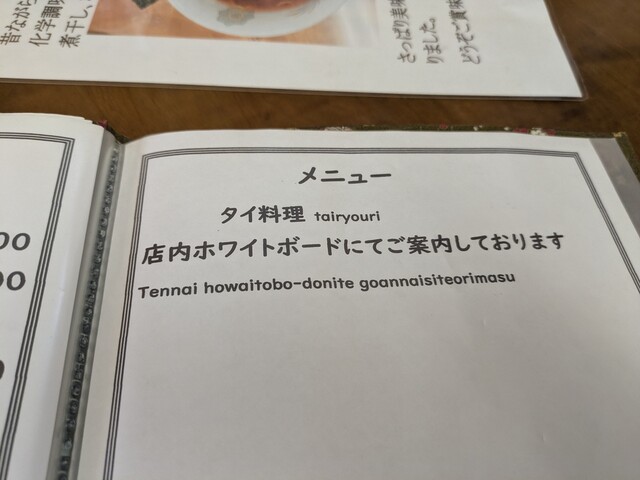 昔ながら
化学調味
煮干し、
さっぱり美味
りました。
どうぞご賞味
メニュー
タイ料理 tairyouri
店内ホワイトボードにてご案内しております
Tennai howaitobo-donite goannaisiteorimasu
00
00
0